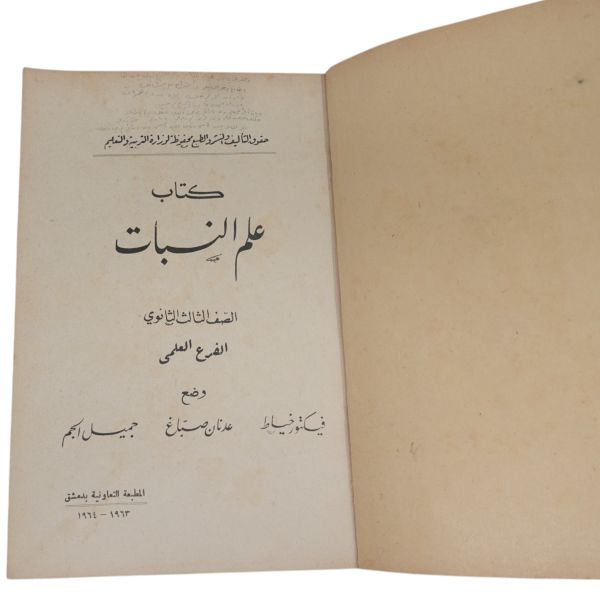 حقوق التأليف والنشر والطبع محفوظة لوزارة التربية والتعليم
كتاب
علم النبات
الصف الثالث الثانوي
الفرع العلمي
وضع
فيكتور خياط عدنان صباغ جميل الجم
المطبعة التعاونية بدمشق
١٩٦٣ - ١٩٦٤